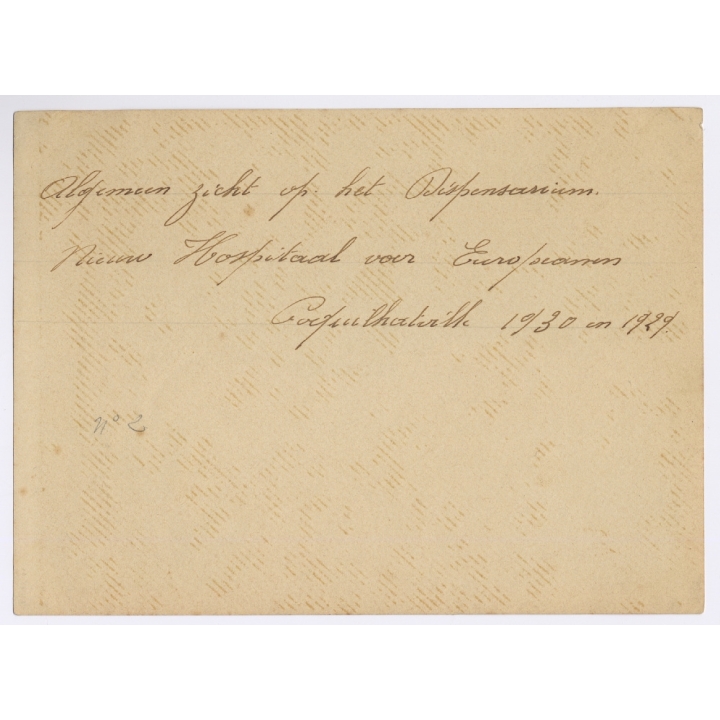 Algemeen zicht op het Dispensarium.
Nieuw Hospitaal voor Europeanen
Coquilhatville 1930 en 1929.
No 2